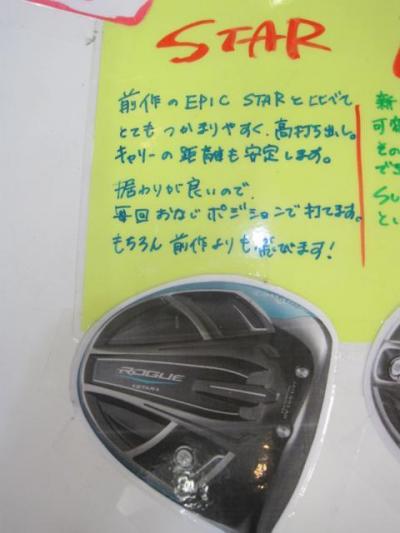 STAR
前作のEPIC STARと比べて
とてもつかまりやすく、高打ち出し。
キャリーの距離も安定します。
据わりが良いので、
毎回おなじポジションで打てます。
もちろん前作よりも飛びます!
新
可変
その
でき
SU
とい
ROGUE
STAR